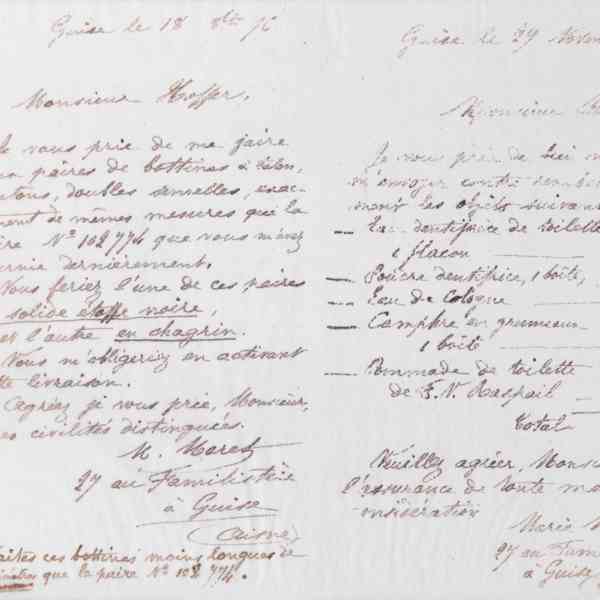 Guise le 18 8bre 76
Monsieur Hoffer,
Je vous prie de me faire
paires de bottines à talon,
boutons, doubles semelles, exac-
ment de mêmes mesures que la
ire Nº 102774 que vous m'avez
ournie dernièrement.
Vous feriez l'une de ces paires
solide étoffe noire,
et l'autre en chagrin.
Vous m'obligeriez en activant
tte livraison.
Agréez je vous prie, Monsieur,
es civilités distinguées.
M. Moret
27 au Familistère
à Guise
(Aisne)
aites ces bottines moins longues de
que la paire Nº 102 774.
Guise le 29 Novem
Monsieur
Je vous prie de
m'envoyer contre rembour
ment les objets suivan
Eau dentifrice de toilette
1 flacon
Poudre dentifrice, 1 boîte,
Eau de Cologne
Camphre en grumeaux
1 boîte
Pommade de toilette
de F. V. Raspail
Total
Veuillez agréer, Monsie
l'assurance de toute ma
onsidération
Marie M
27 au Fam
à Guise